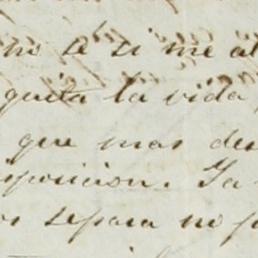 no sé si me al
quita la vida
que mas des
sposicion. Ya
os separa no p